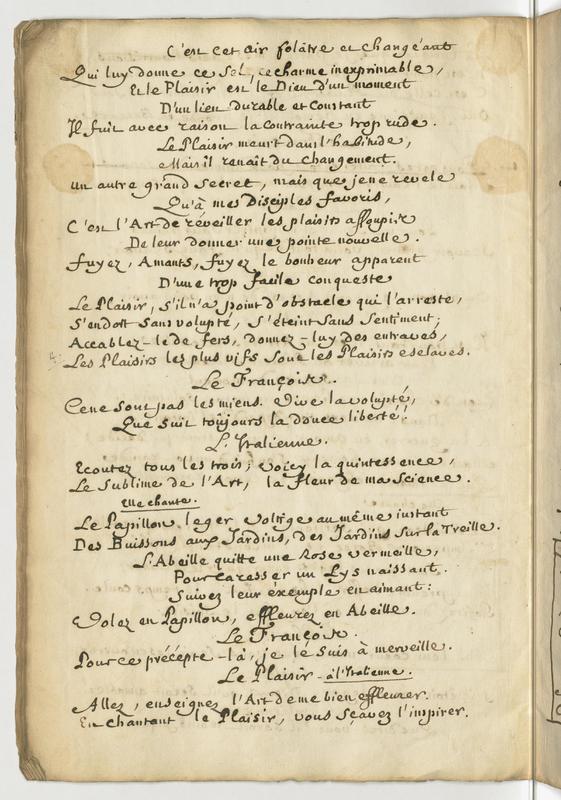 C'est cet air folâtre et changéant
Qui luy donne ce Sel, ce charme inexprimable,
Et le Plaisir est le Dieu d'un moment
D'un lien durable et Constant
Il fuit avec raison la contrainte trop rude.
Le Plaisir meurt dans l'habitude,
Mais il renaît du changement.
un autre grand Secret, mais que je ne revele
Qu'à mes Disciples favoris,
C'est l'Art de réveiller les plaisirs assoupis
De leur donner une pointe nouvelle.
fuyez, Amants, fuyez le bonheur apparent
D'une trop facile conqueste
Le Plaisir, s'il n'a point d'obstacle qui l'arreste,
S'endort Sans volupté, S'éteint Sans Sentiment;
Accablez-le de fers, donnez-luy des entraves,
Les Plaisirs les plus vifs Sont les Plaisirs esclaves.
Le François.
Ce ne Sont pas les miens. Vive la volupté,
Que Suit toûjours la douce liberté!
L'Italienne.
Ecoutez tous les trois; voicy la quintessence,
Le Sublime de l'Art, la fleur de ma Science.
Elle chante.
Le Papillon leger voltige au même instant
Des Buissons aux Jardins, des Jardins Sur la Treille.
L'Abeille quitte une Rose vermeille,
Pour caresser un Lys naissant.
Suivez leur éxemple en aimant:
Volez en Papillon, effleurez en Abeille.
Le François.
Pour ce précepte-là, je le Suis à merveille.
Le Plaisir - à l'Italienne.
Allez, enseignez l'Art de me bien effleurer.
En chantant le Plaisir, vous Sçavez l'inspirer.